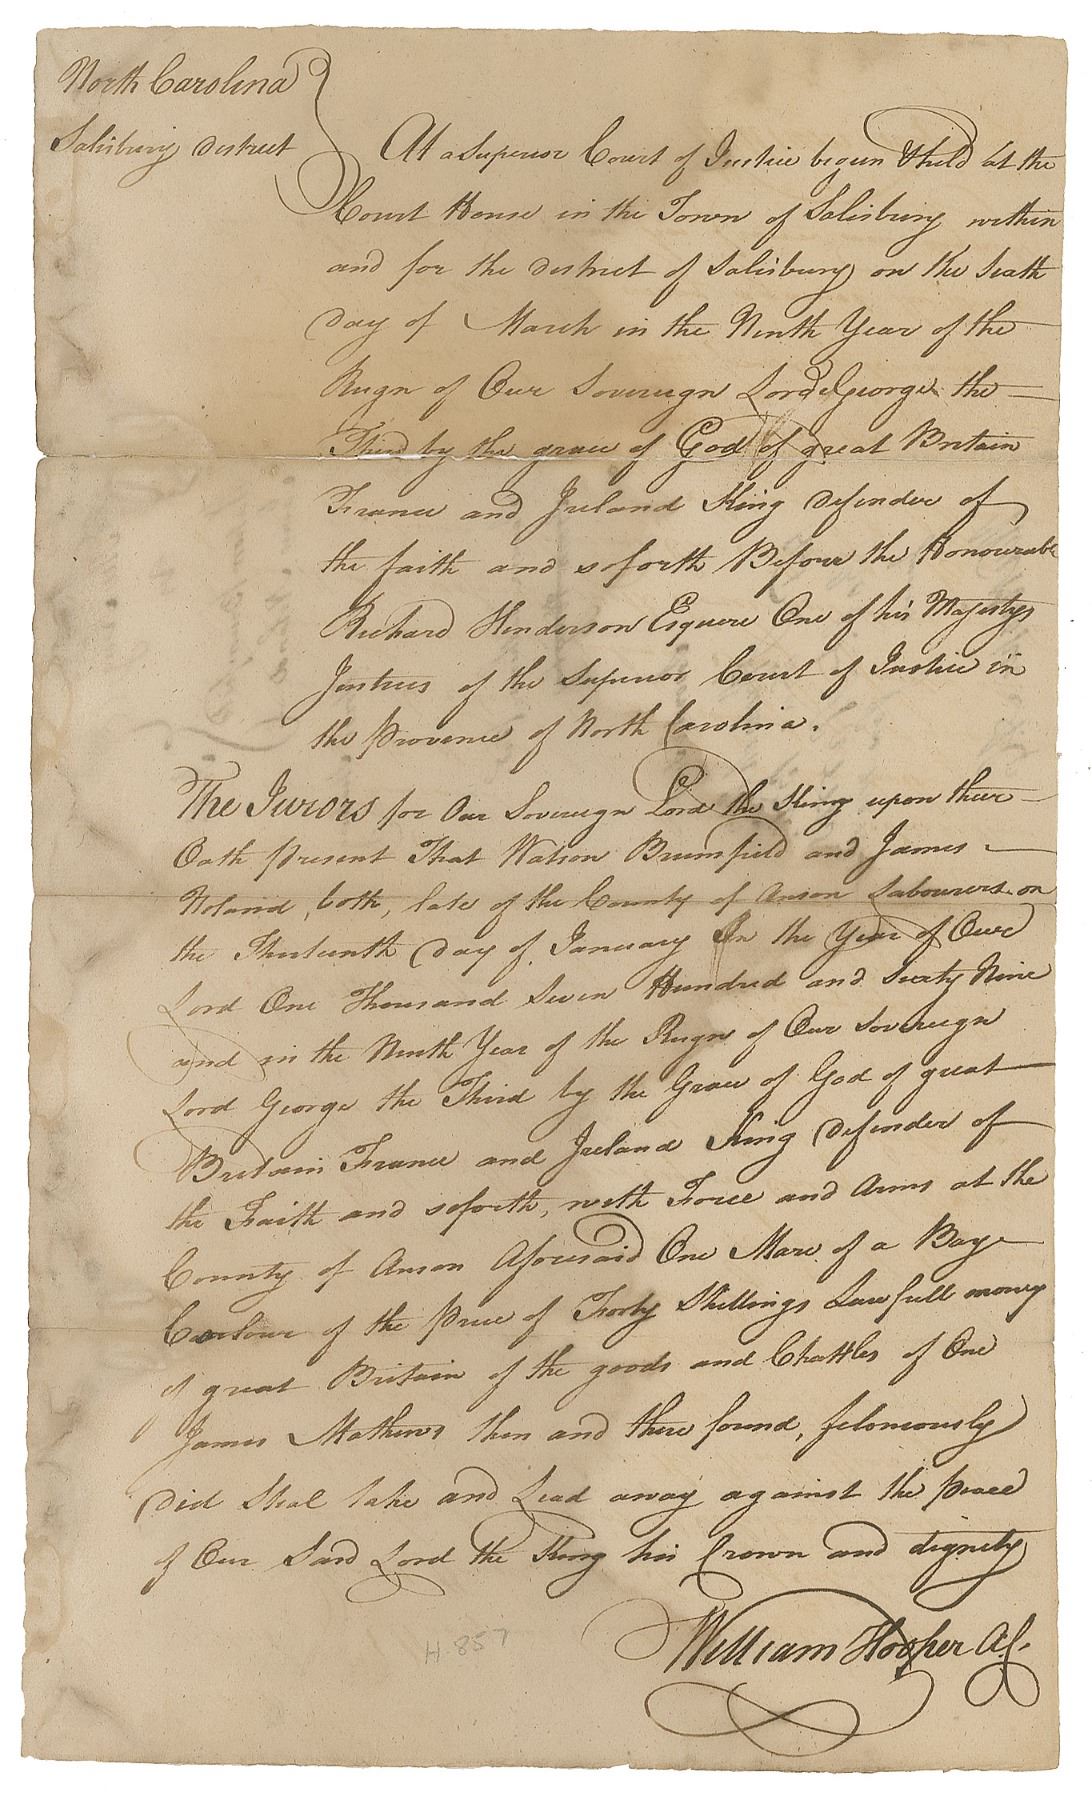 North Carolina
Salisbury District
At a Superior Court of Justice begun & held at the
Court House in the Town of Salisbury within
and for the District of Salisbury on the
day of March in the Ninth Year of the
Reign of Our Sovereign Lord George the
Third by the grace of God of great Britain
France and Ireland King Defender of
the faith and soforth Before the Honourable
Richard Henderson Esquire One of his Majestys
Justices of the Superior Court of Justice in
the Province of North Carolina.
The Jurors for Our Sovereign Lord the King upon their
Oath present That Watson Brumfield and James
Noland, both, late of the County of Anson Labourers on
the Thirteenth Day of January In the Year of Our
Lord One Thousand Seven Hundred and Sixty Nine
and in the Ninth Year of the Reign of Our Sovereign
Lord George the Third by the Grace of God of great
Britain France and Ireland King Defender of
the Faith and soforth, with Force and Arms at the
County of Anson Aforesaid One Mare of a Bay
Coulour of the price of Forty Shillings Lawfull money
of great Britain of the goods and Chattles of One
James Mathews then and there found, feloniously
Did Steal take and Lead away against the peace
of Our Said Lord the King his Crown and dignity
William Hooper
H.857